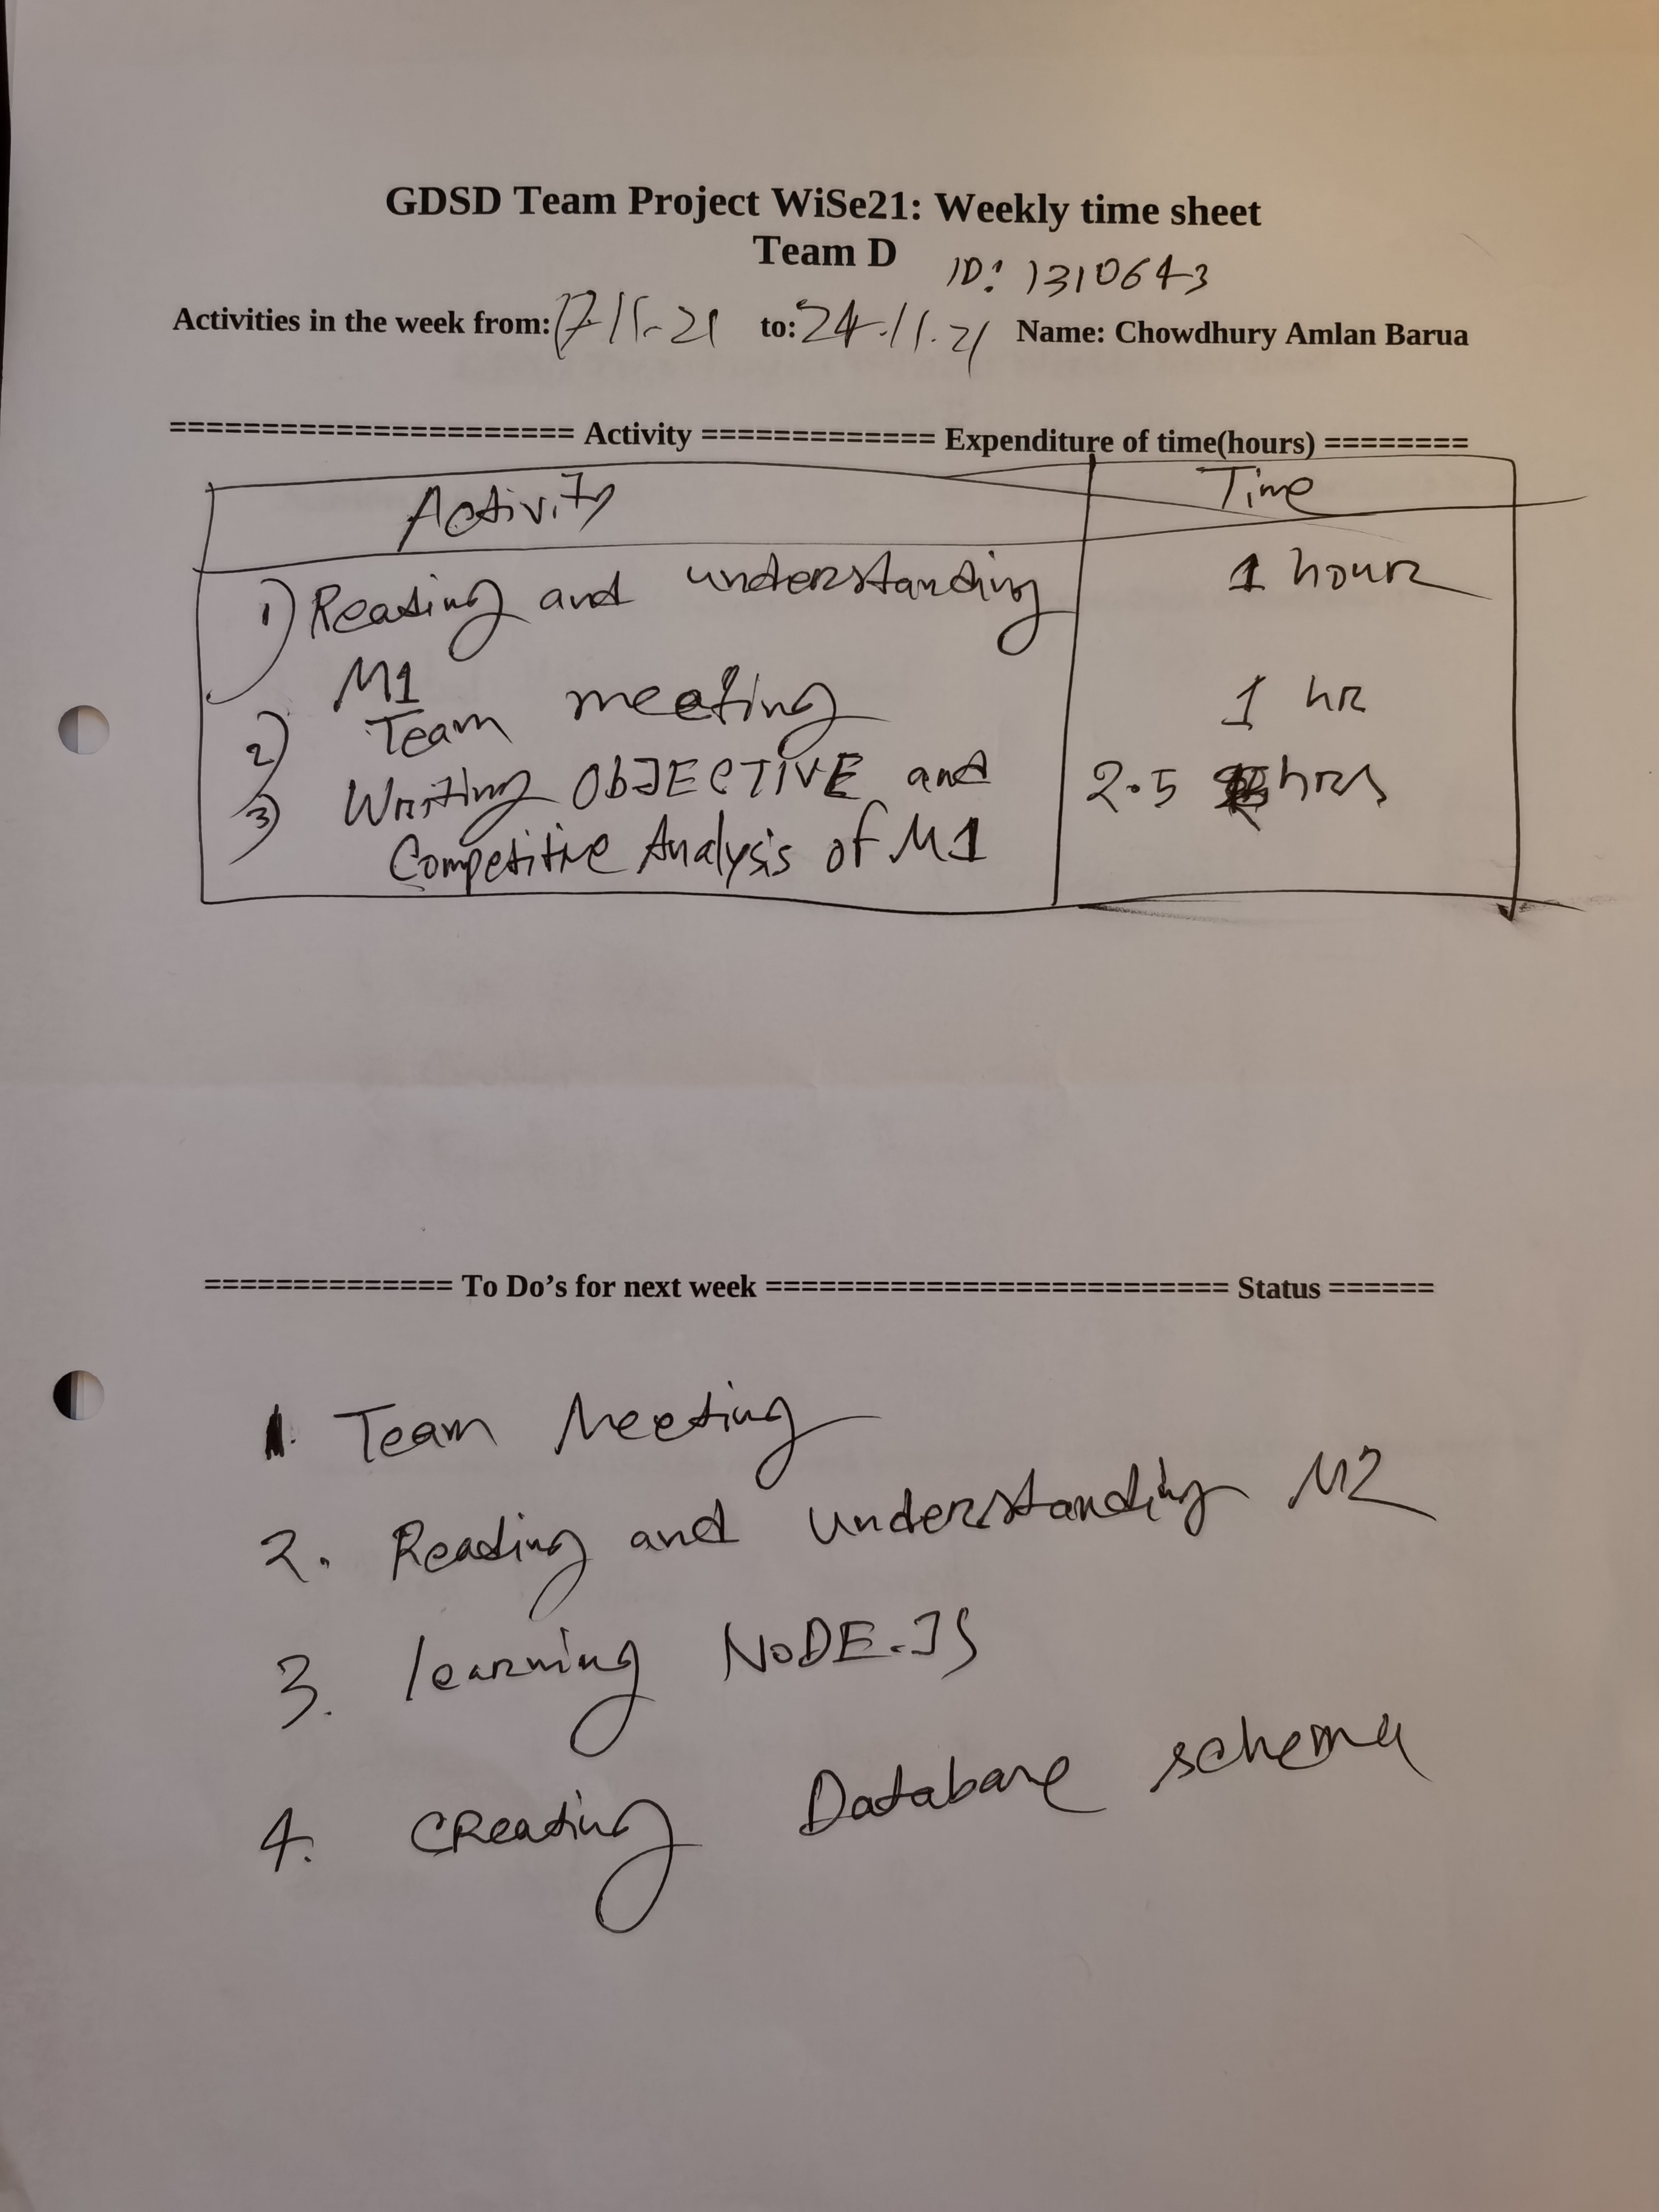 GDSD Team Project WiSe21: Weekly time sheet
Team D ID: 1310643
Activities in the week from: 17-11-21 to: 24.11.21 Name: Chowdhury Amlan Barua
====================== Activity ============= Expenditure of time(hours) ========
Activity Time
1) Reading and understanding 1 hour
M1
2) Team meeting 1 hr
3) Writing ObJECTIVE and 2.5 hrs
Competitive Analysis of M1
============== To Do’s for next week ========================== Status ======
1. Team Meeting
2. Reading and understanding M2
3. learning NoDE.JS
4. CReating Database schema